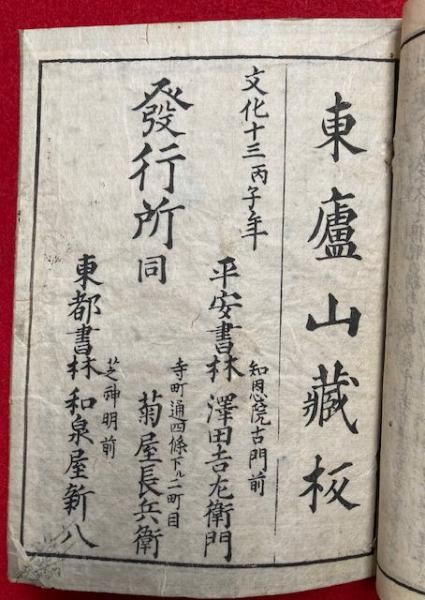 東廬山藏板
文化十三丙子年
發行所
平安書林
知恩院古門前
澤田吉左衛門
同
寺町通四條下ル二町目
菊屋長兵衛
東都書林
芝神明前
和泉屋新八